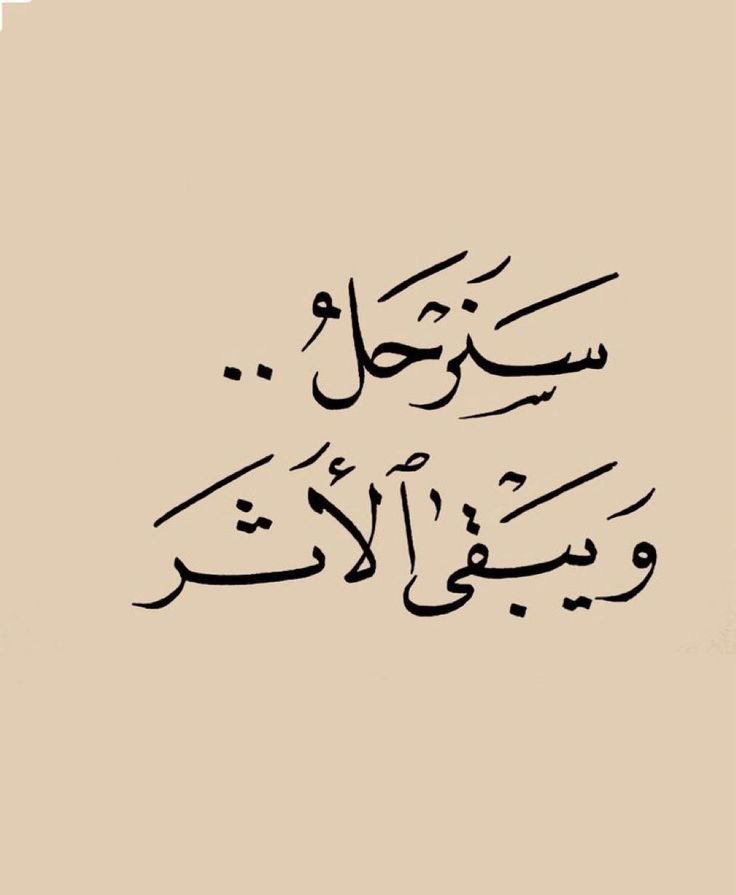 سَنَرْحَلُ ..
وَيَبْقىٰ ٱلأَثَر